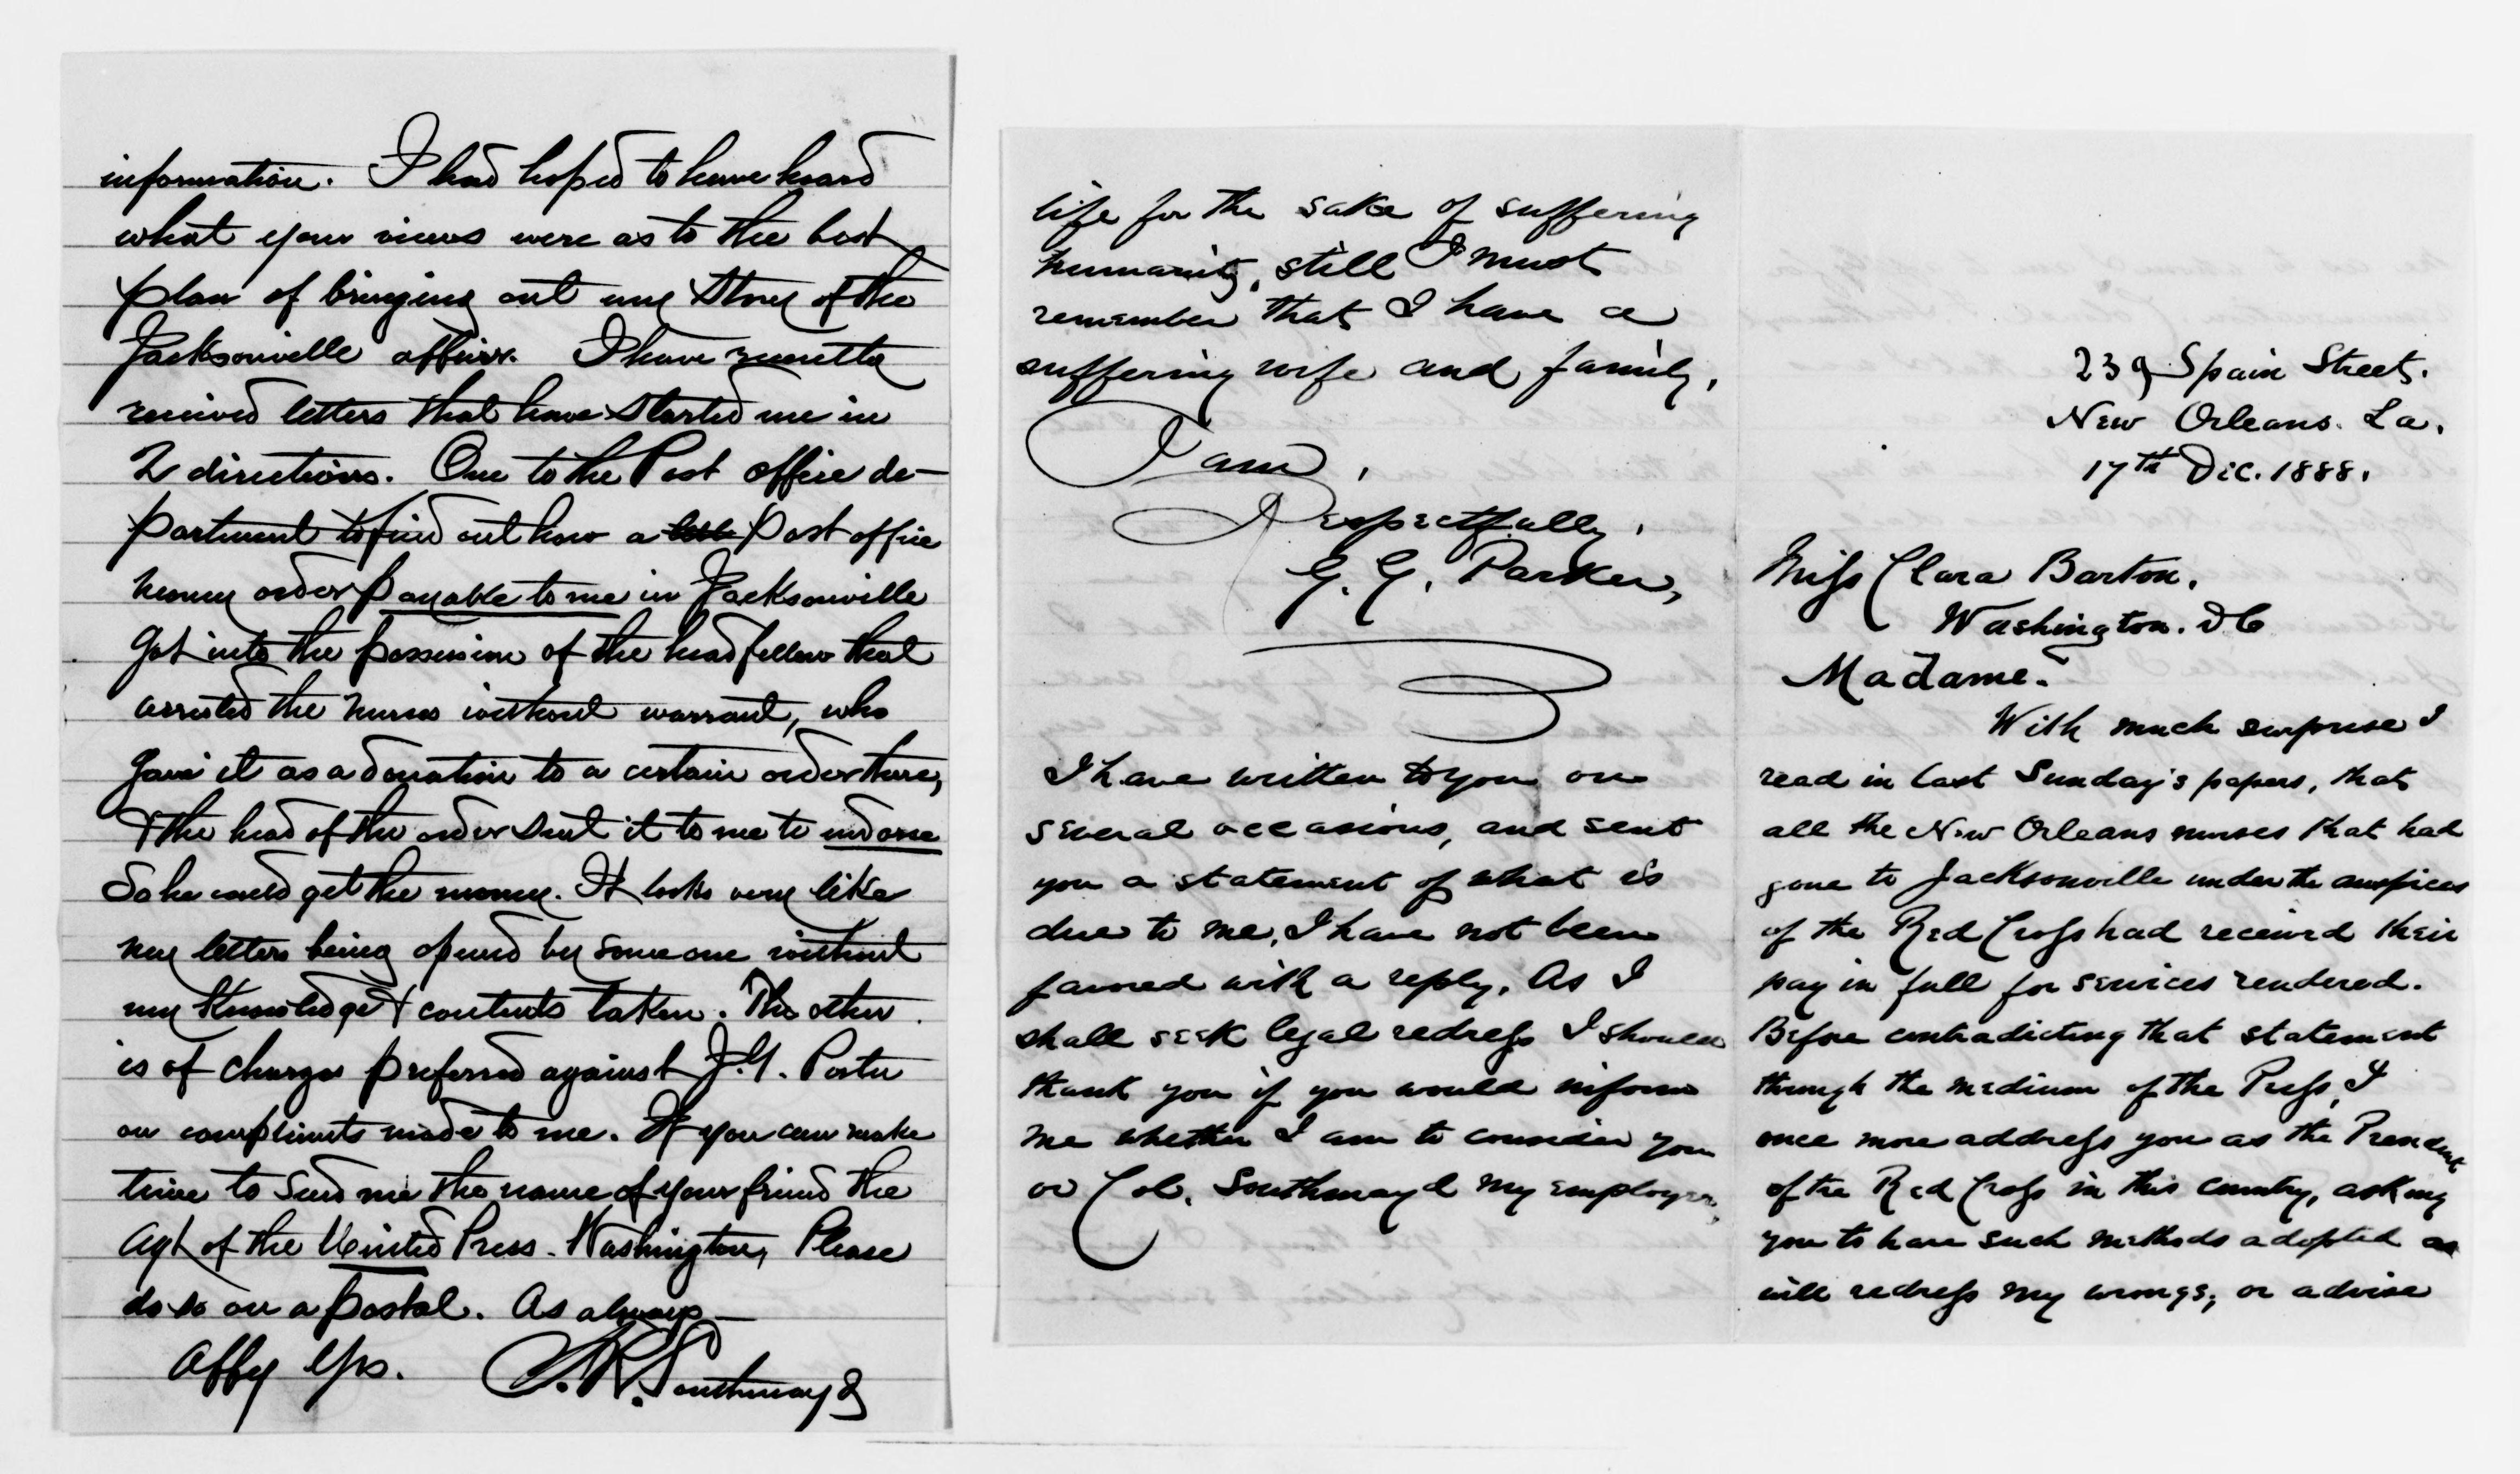 information. I had hoped to have heard
what your views were as to the best
plan of bringing out my story of the
Jacksonville affair. I have recently
received letters that have started me in
2 directions. One to the Post office de-
partment to find out how a Post office
money order payable to me in Jacksonville
got into the possession of the head fellow that
arrested the nurses without warrant, who
gave it as a donation to a certain order there,
& the head of the order sent it to me to indorse
So he could get the money. It looks very like
my letters being opened by some one without
my knowledge & contents taken. The other
is of charges preferred against J.Y. Porter
on complaints made to me. If you can make
time to send me the name of your friend the
Agt of the United Press. Washington, Please
do so on a postal. As always—
Affy Yrs. F. R. Southmayd
life for the sake of suffering
humanity, still I must
remember that I have a
suffering wife and family,
I am,
Respectfully,
G. G. Parker,
I have written to you on
several occasions, and sent
you a statement of what is
due to me, I have not been
favored with a reply. As I
shall seek legal redress I should
thank you if you would inform
me whether I am to consider you
or Col. Southmayd my employer,
239 Spain Street.
New Orleans. La.
17th Dec. 1888.
Miss Clara Barton,
Washington. DC
Madame.
With much surprise I
read in last Sunday's papers, that
all the New Orleans nurses that had
gone to Jacksonville under the auspices
of the Red Cross had received their
pay in full for services rendered.
Before contradicting that statement
through the medium of the Press, I
once more address you as the President
of the Red Cross in this country, asking
you to have such methods adopted as
will redress my wrongs, or advise